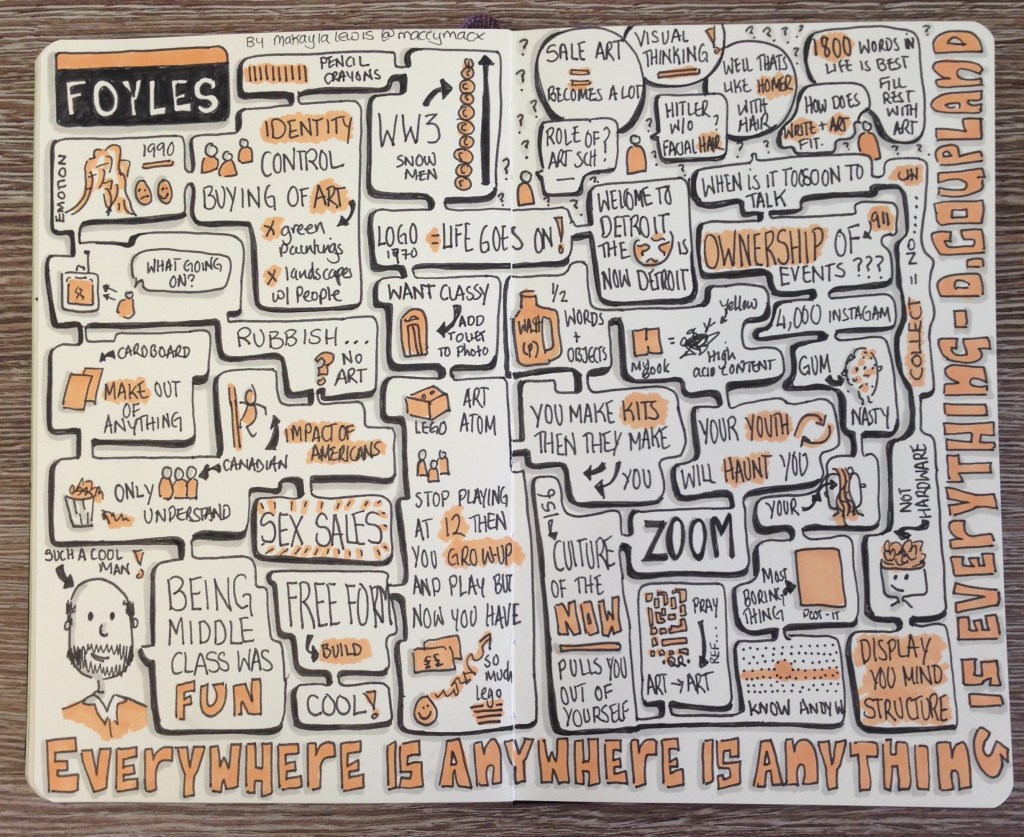 BY MAKAYLA LEWIS @MACCYMACX
FOYLES
PENCIL
CRAYONS
WW3
SNOW
MEN
EMOTION
1990
IDENTITY
CONTROL
BUYING OF ART
X green
paintings
X landscapes
w/ People
LOGO = LIFE GOES ON!
1970
WHAT GOING
ON?
WANT CLASSY
ADD
TOILET
TO PHOTO
RUBBISH...
? NO
ART
CARDBOARD
MAKE OUT
OF
ANYTHING
IMPACT OF
AMERICANS
CANADIAN
ONLY
UNDERSTAND
SEX SALES
LEGO
ART
ATOM
STOP PLAYING
AT 12 THEN
YOU GROWUP
AND PLAY BUT
NOW YOU HAVE
££
SO
MUCH
Lego
SUCH A COOL
MAN!
BEING
MIDDLE
CLASS WAS
FUN
FREE FORM
BUILD
COOL!
SALE ART
=
BECOMES A LOT
VISUAL
THINKING!
WELL THATS
LIKE HOMER
WITH
HAIR
1800 WORDS IN
LIFE IS BEST
FILL
REST
WITH
ART
ROLE OF?
ART SCH
HITLER
W/O ?
FACIAL HAIR
HOW DOES
WRITE + ART
FIT.
WELCOME TO
DETROIT
THE IS
NOW DETROIT
WHEN IS IT TOO SOON TO
TALK
911
OWNERSHIP OF
EVENTS ???
UN
COLLECT = NO.....
WASH
(4)
1/2
WORDS
+
OBJECTS
MYBOOK
=
yellow
High
acid content
4,000 INSTAGAM
GUM
NASTY
YOU MAKE KITS
THEN THEY MAKE
YOU
YOUR YOUTH
WILL HAUNT YOU
YOUR
NOT
HARDWARE
156
CULTURE
OF THE
NOW
PULLS YOU
OUT OF
YOURSELF
ZOOM
PRAY
REF...
QR
ART → ART
MOST
BORING
THING
POST-IT
KNOW ANDY W
DISPLAY
YOU MIND
STRUCTURE
EVERYWHERE IS ANYWHERE IS ANYTHING
IS EVERYTHING - D.COUPLAND